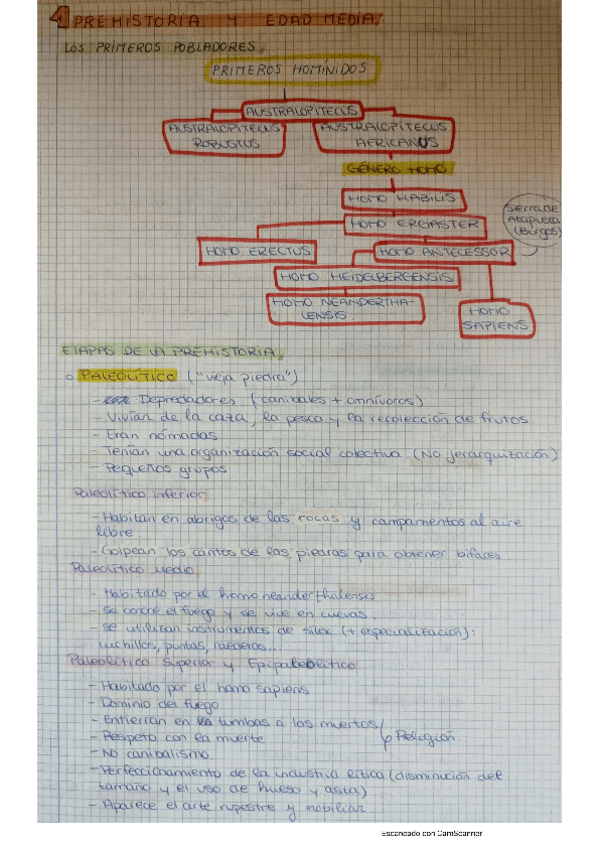 1 PREHISTORIA Y EDAD MEDIA.
LOS PRIMEROS POBLADORES.
PRIMEROS HOMÍNIDOS
AUSTRALOPITECUS
AUSTRALOPITECUS ROBUSTUS
AUSTRALOPITECUS AFRICANUS
GÉNERO HOMO
HOMO HABILIS
HOMO ERGASTER
Sierra de Atapuerca (Burgos)
HOMO ERECTUS
HOMO ANTECESSOR
HOMO HEIDELBERGENSIS
HOMO NEANDERTHA-
LENSIS
HOMO SAPIENS
ETAPAS DE LA PREHISTORIA.
o PALEOLÍTICO ("vieja piedra")
- Depredadores (caníbales + omnívoros)
- Vivían de la caza, la pesca y la recolección de frutos.
- Eran nómadas
- Tenían una organización social colectiva (No jerarquización)
- Pequeños grupos
Paleolítico inferior
- Habitan en abrigos de las rocas y campamentos al aire
libre
- Golpean los cantos de las piedras para obtener bifaces
Paleolítico Medio
- Habitado por el homo neanderthalensis
- Se conoce el fuego y se vive en cuevas.
- Se utilizan instrumentos de sílex (+ especialización):
cuchillos, puntas, raederas...
Paleolítico Superior y Epipaleolítico
- Habitado por el homo sapiens
- Dominio del fuego
- Entierran en tumbas a los muertos
- Respeto con la muerte
Religión
- No canibalismo
- Perfeccionamiento de la industria lítica (disminución del
tamaño y el uso de hueso y asta)
- Aparece el arte rupestre y mobiliar.
Escaneado con CamScanner